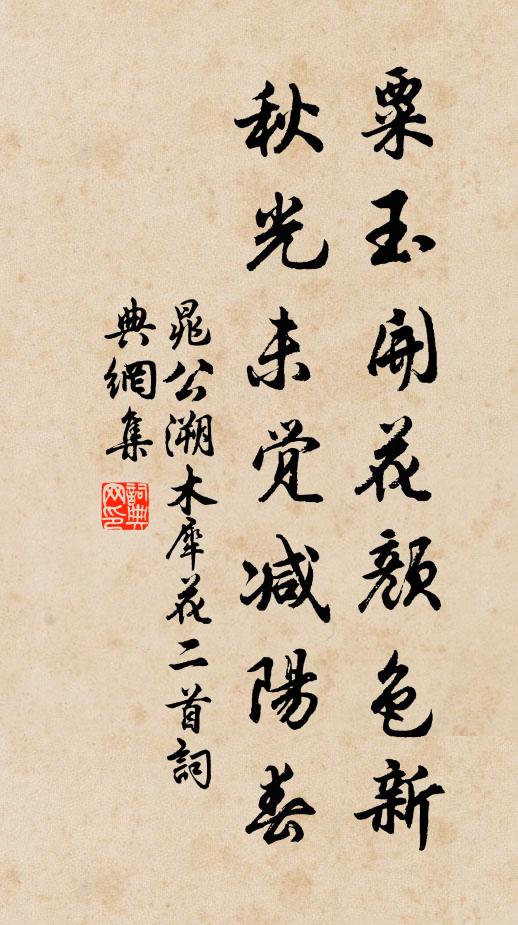 粟玉開花顏色新
秋光未覺減陽春
晁公溯木犀花二首詞
典網集
詞典
网印